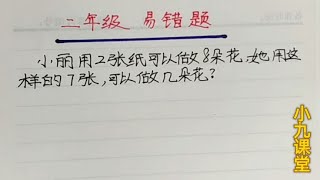 二年级 易错题
小丽用2张纸可以做8朵花,她用这
样的7张,可以做几朵花?
小九课堂